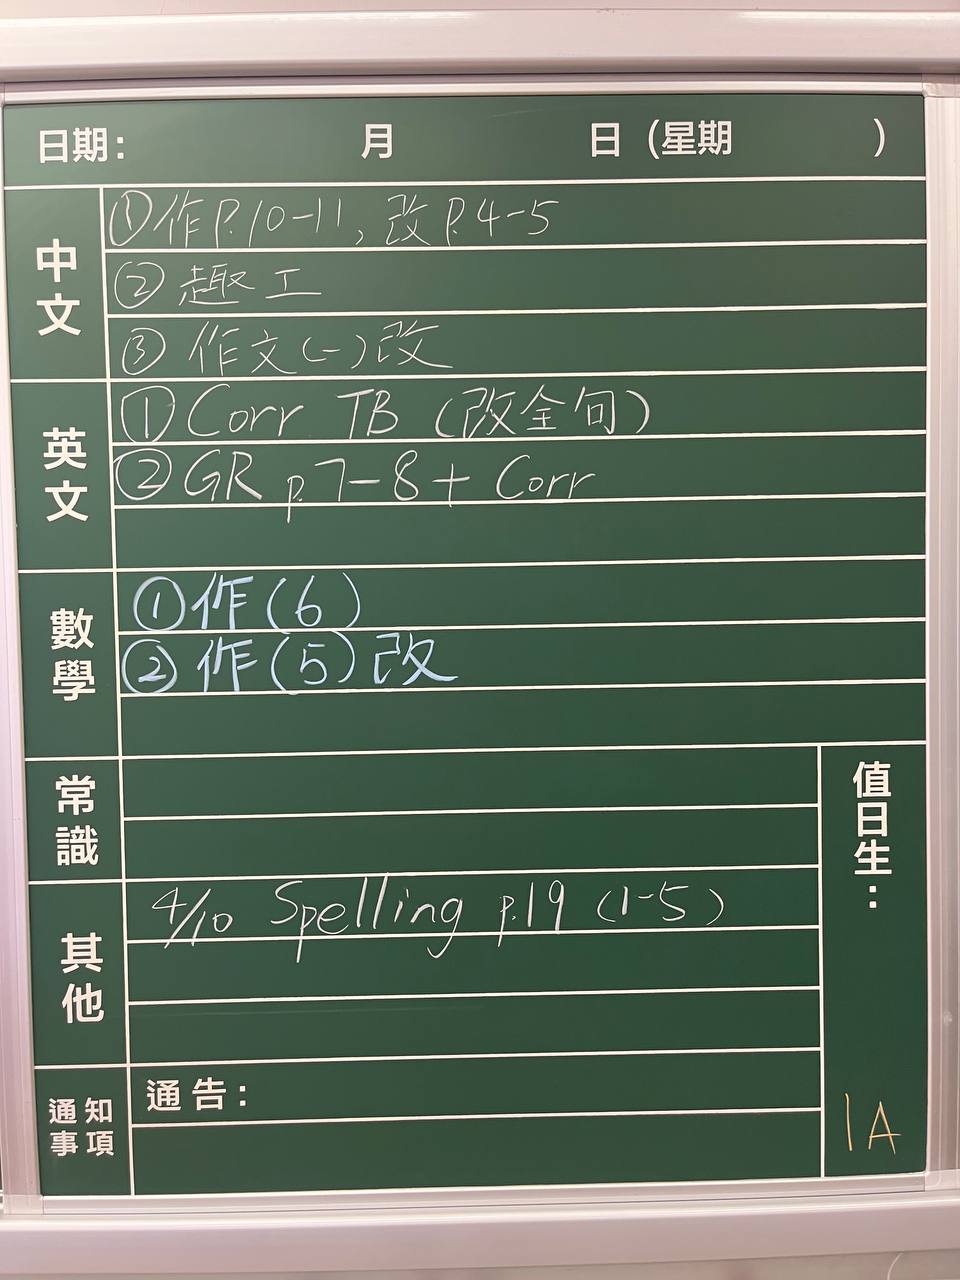 日期: 月 日 (星期 )
中文
①作P.10-11, 改P.4-5
② 趣工
③ 作文(一)改
英文
① Corr TB (改全句)
② GR p.7-8 + Corr
數學
①作(6)
②作(5)改
常識
其他
4/10 Spelling p.19 (1-5)
通知事項
通告:
值日生:
1A